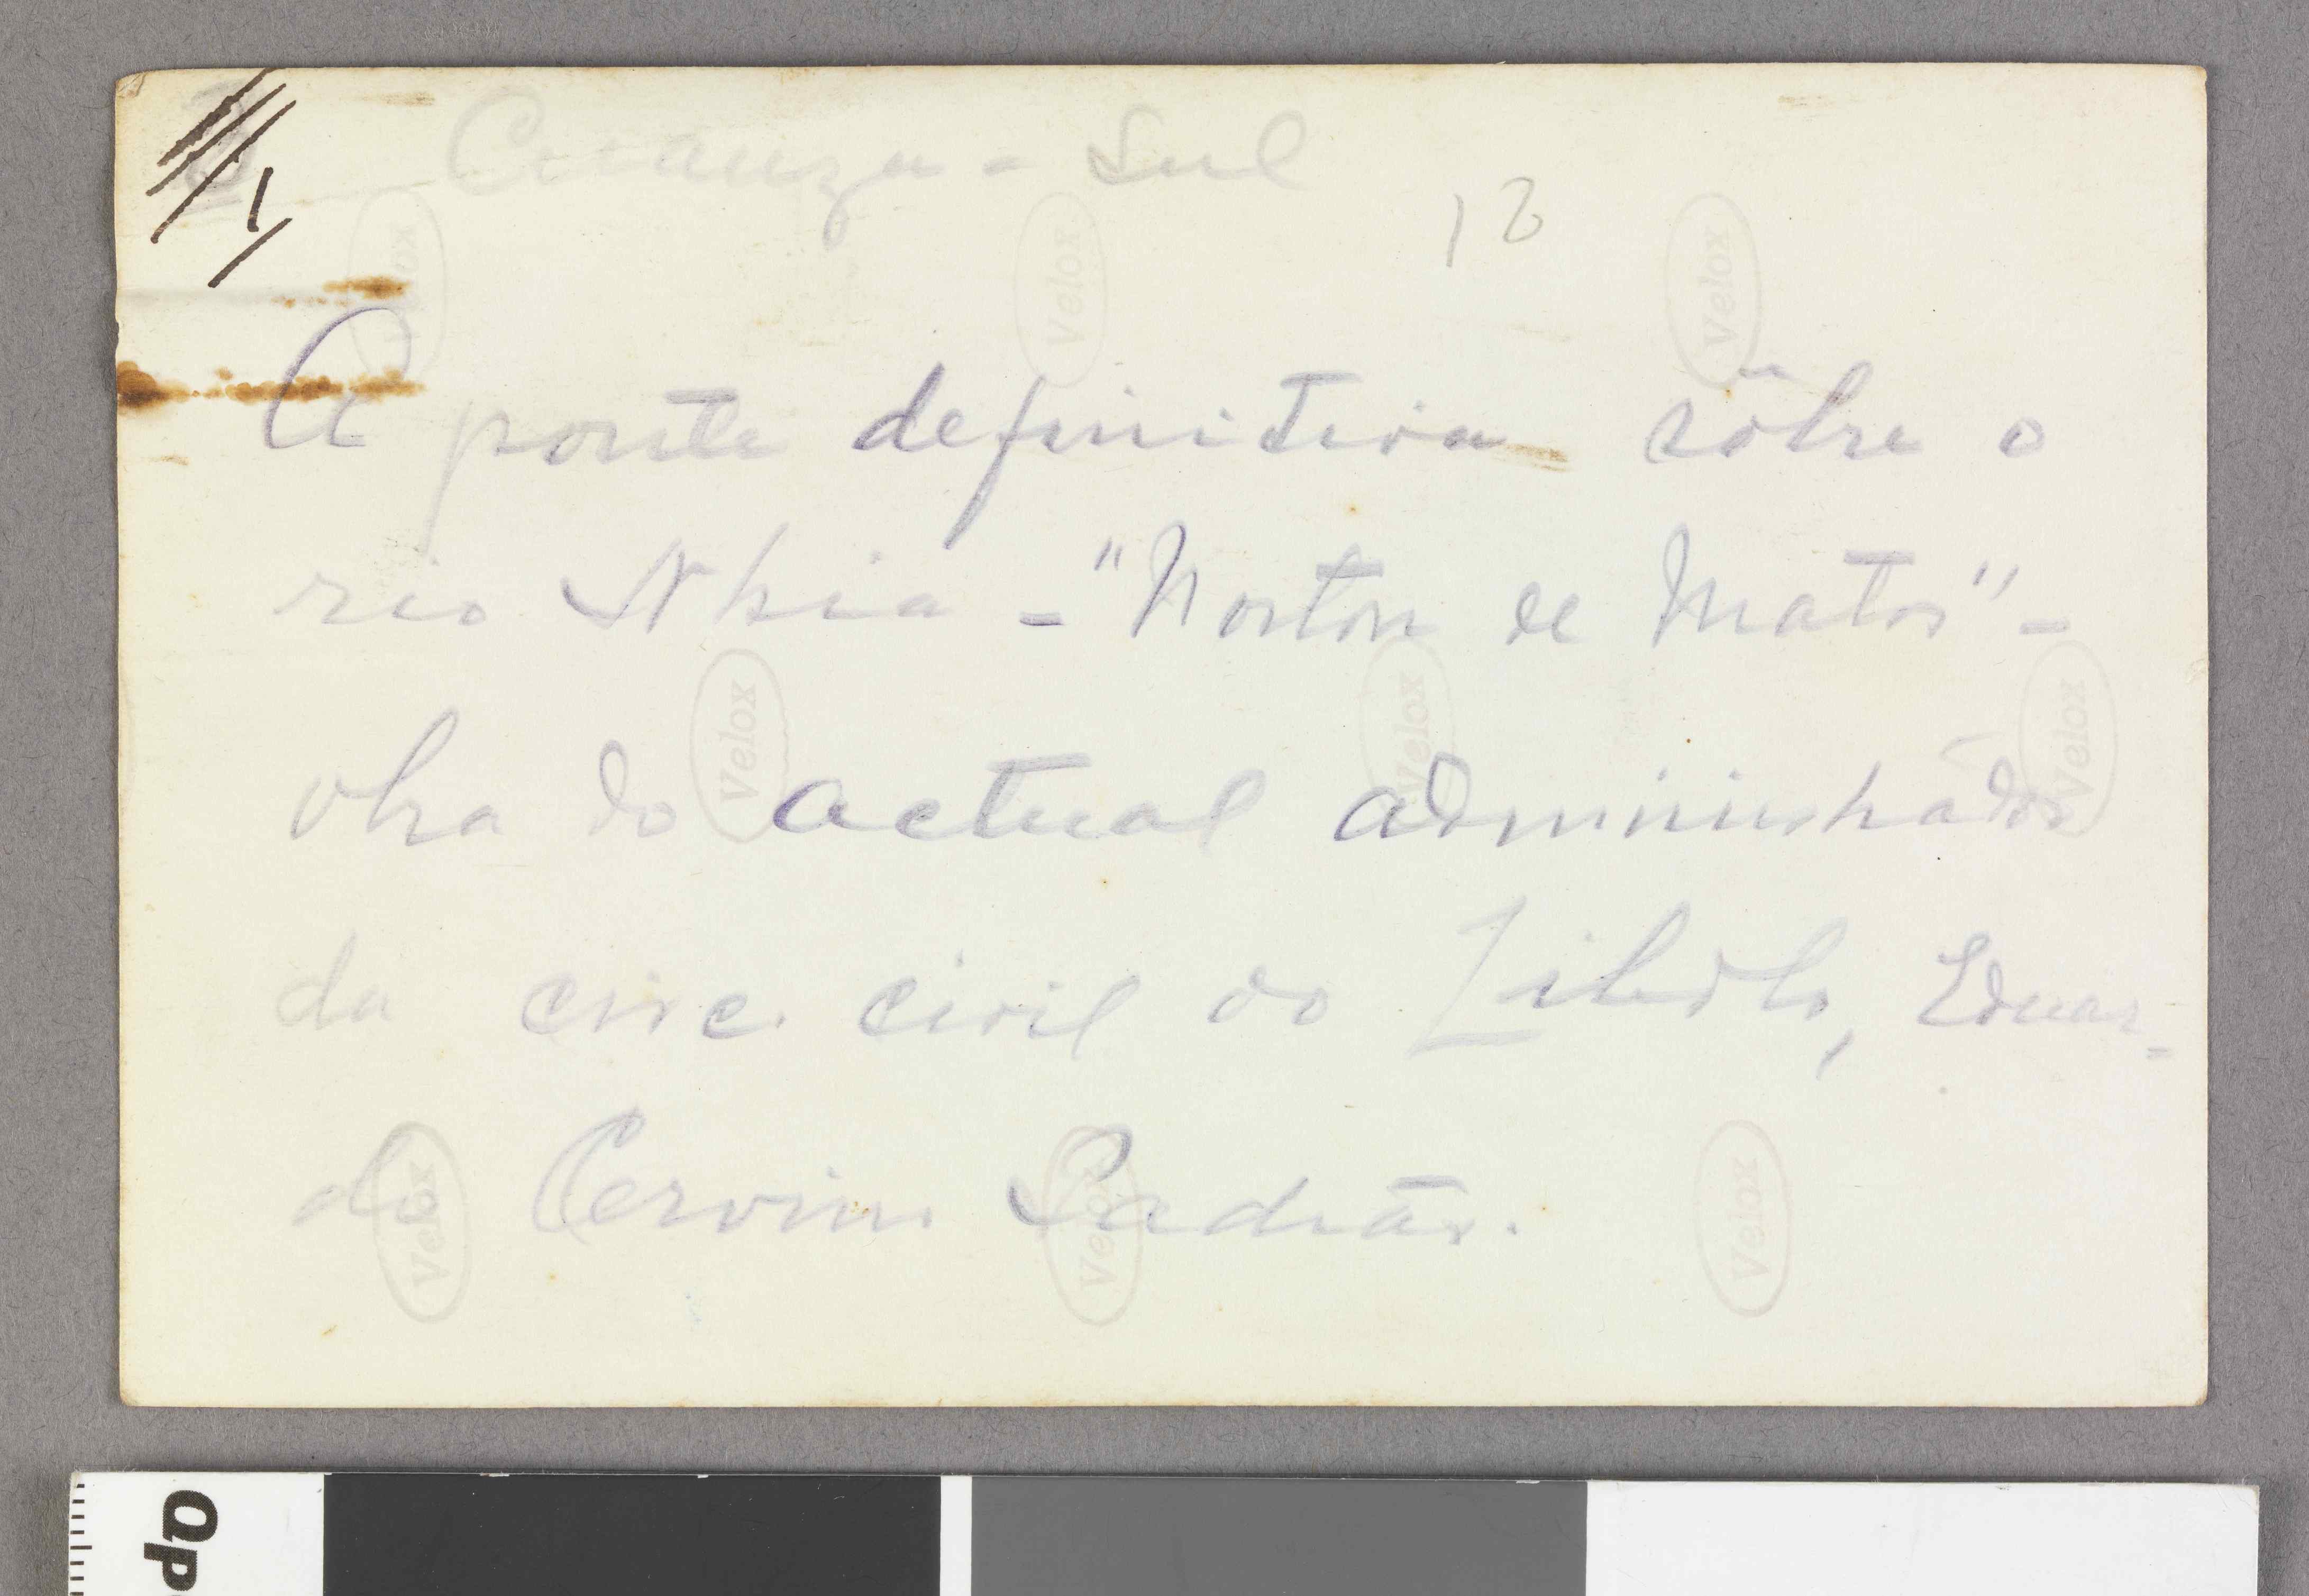 Cuanza - Sul
12
A ponte definitiva sôbre o
rio Nhia - "Norton de Matos" -
obra do actual administrador
da circ. civil do Libolo, Eduar-
do Cervim Padrão.
Velox
Velox
Velox
Velox
Velox
Velox
Velox
Velox
Velox